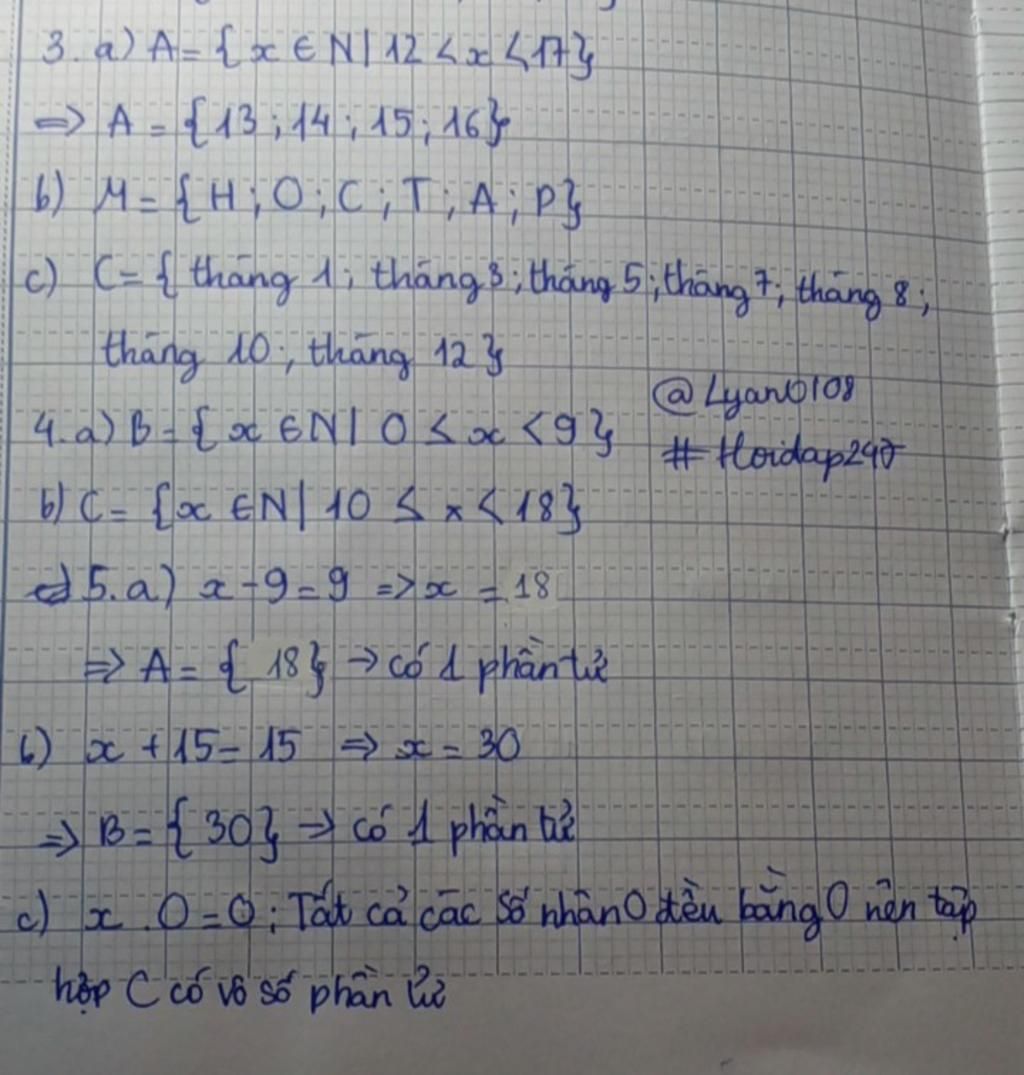 3. a) A = { x ∈ N | 12 < x < 17}
=> A = {13 ; 14 ; 15 ; 16}
b) M = { H ; O ; C ; T ; A ; P}
c) C = { tháng 1 ; tháng 3 ; tháng 5 ; tháng 7 ; tháng 8 ;
tháng 10 ; tháng 12 }
@Lyan0108
4. a) B = { x ∈ N | 0 ≤ x < 9 }
# Hoidap247
b) C = {x ∈ N | 10 ≤ x < 18}
5. a) x - 9 = 9 => x = 18
=> A = { 18} -> có 1 phần tử
b) x + 15 = 15 => x = 30
=> B = { 30} -> có 1 phần tử
c) x . 0 = 0 ; Tất cả các số nhân 0 đều bằng 0 nên tập
hợp C có vô số phần tử